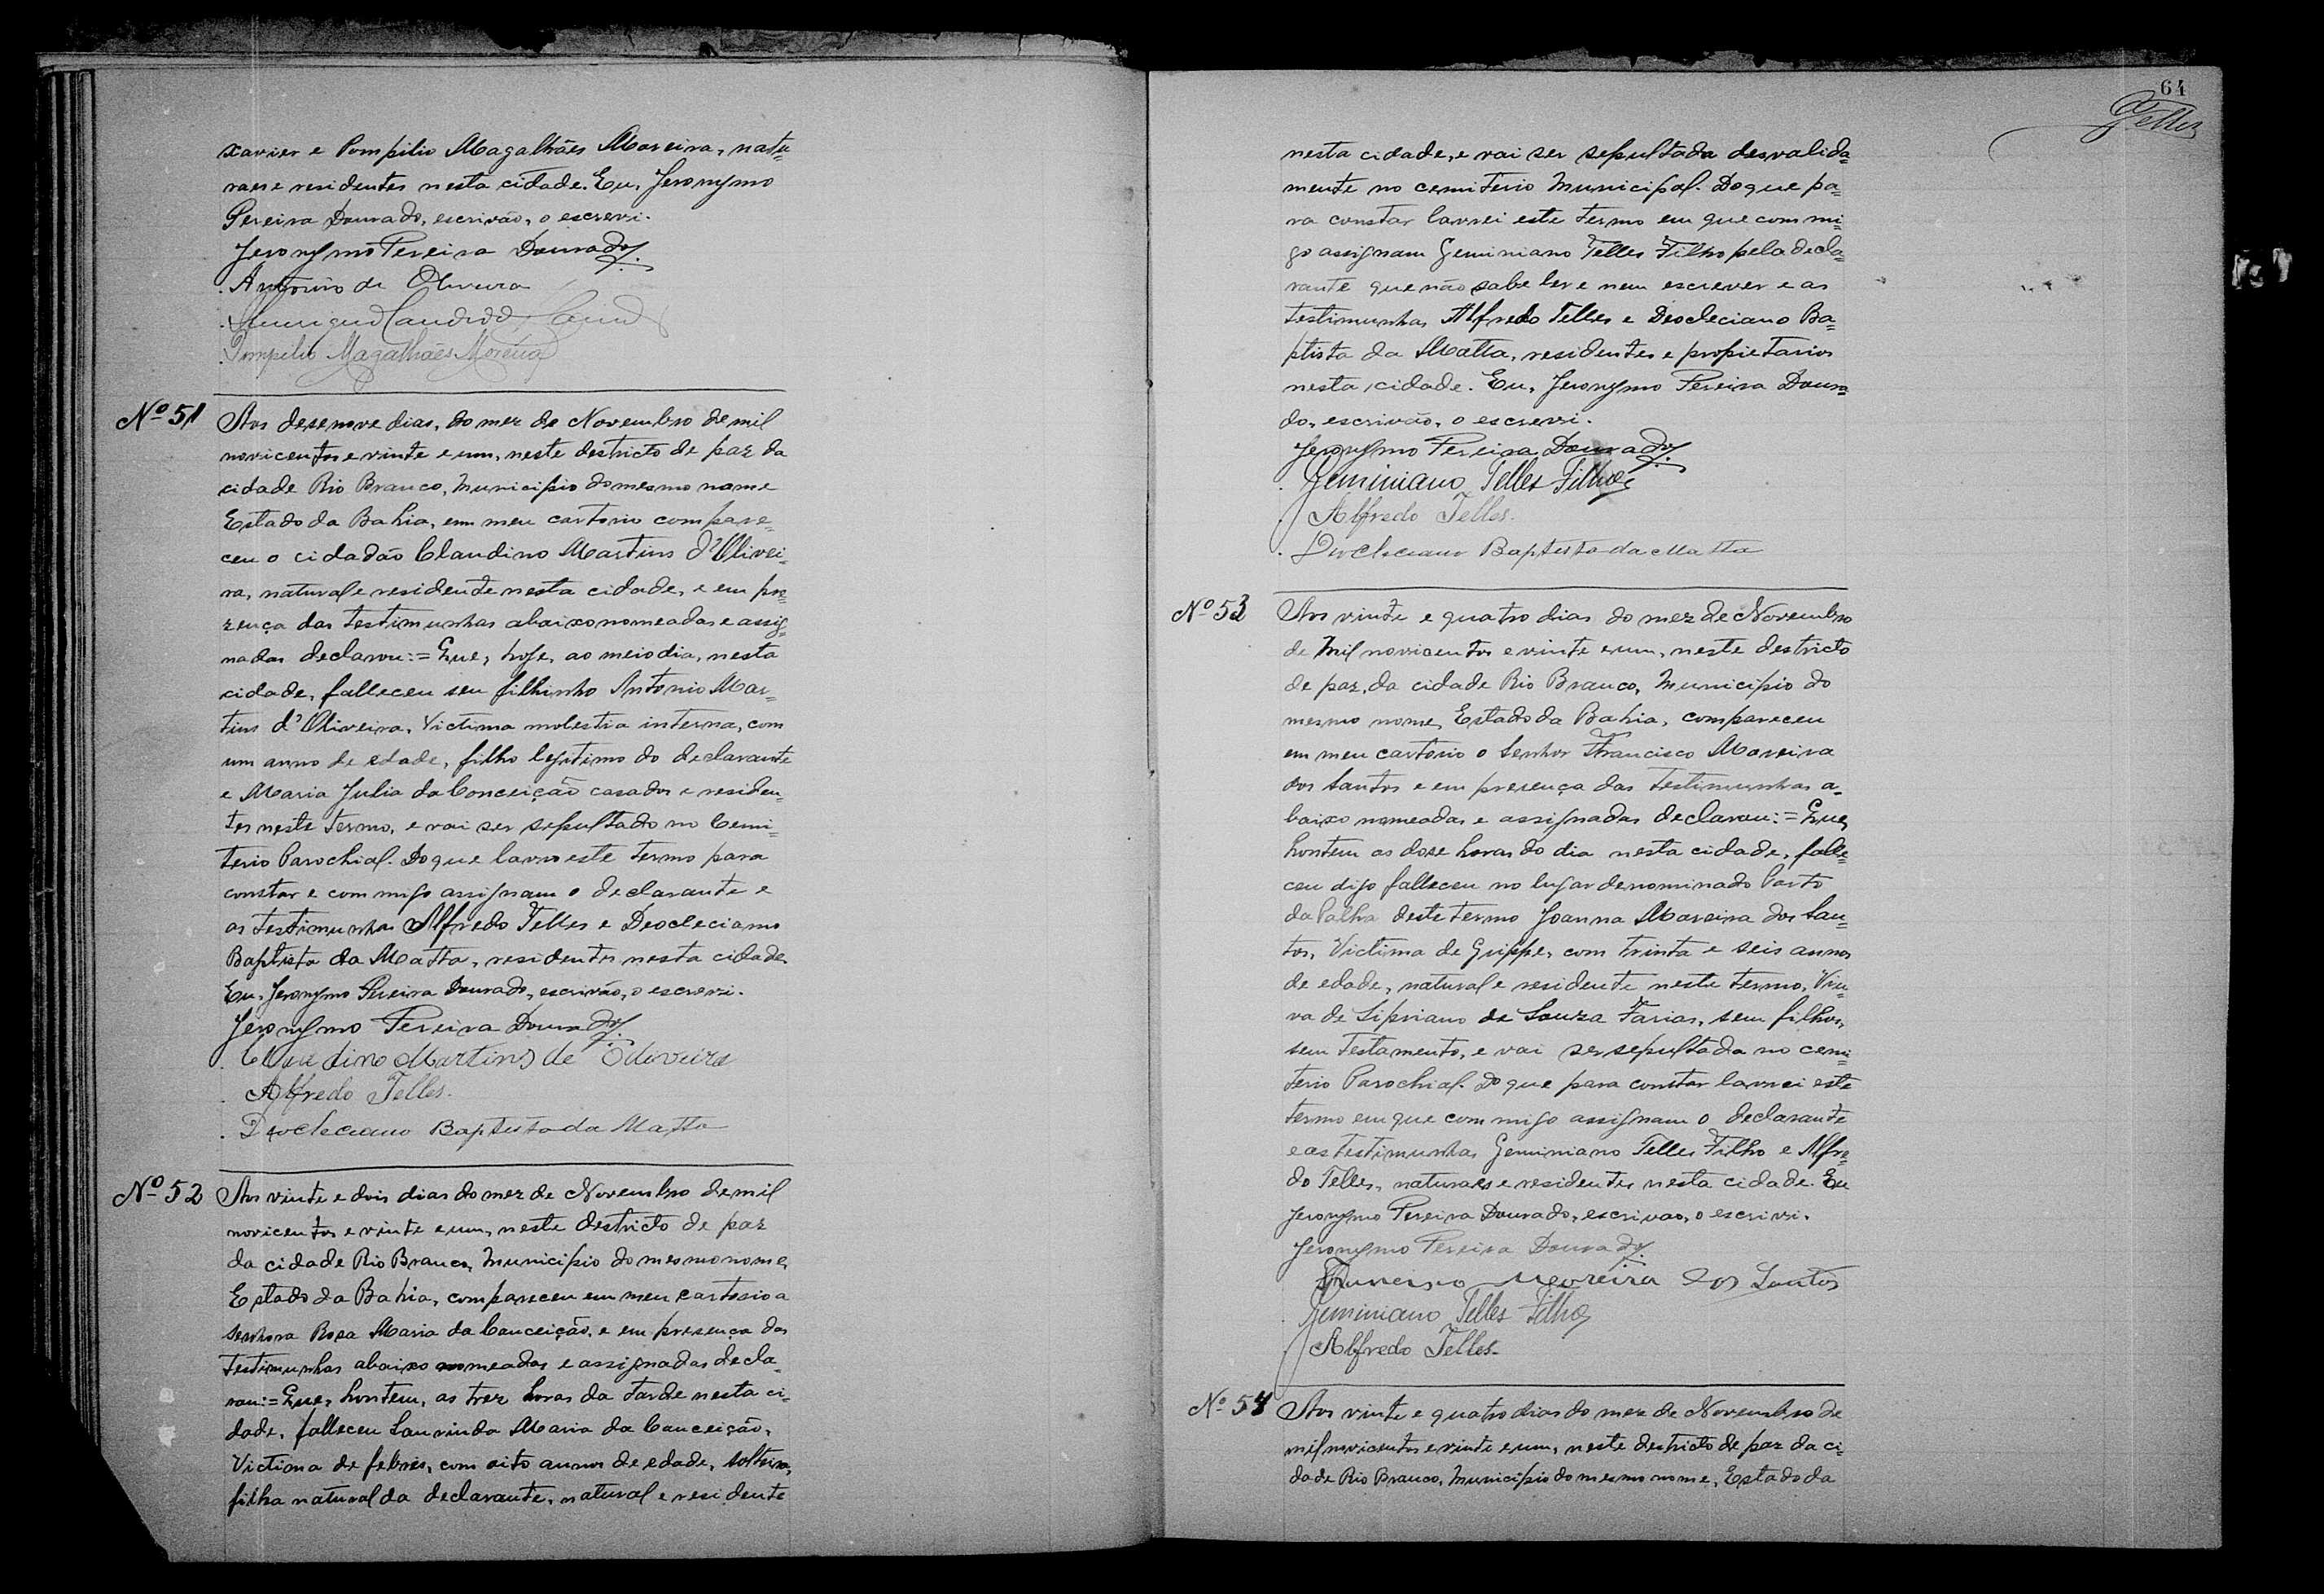 xavier e Pompilio Magalhães Moreira, natu-
raes e residentes nesta cidade. Eu, Jeronymo
Pereira Dourado, escrivão, o escrevi.
Jeronymo Pereira Dourado
Antonio de Oliveira
Pompilio Magalhães Moreira
Nº 51
Aos desenove dias, do mez de Novembro de mil
novicentos e vinte e um, neste destricto de paz da
cidade Rio Branco, Municipio do mesmo nome
Estado da Bahia, em meu cartorio compare-
ceu o cidadão Claudino Martins d'Olivei-
ra, natural e residente nesta cidade, e em pre-
zença das testimunhas abaixo nomeadas e assig-
nadas declarou:= Que, hoje, ao meio dia, nesta
cidade, falleceu seu filhinho Antonio Mar-
tins d'Oliveira, Victima molestia interna, com
um anno de edade, filho legitimo do declarante
e Maria Julia da Conceição casados e residen-
tes neste termo, e vai ser sepultado no Cemi-
terio Parochial. Do que lavro este termo para
constar e com migo assignam o declarante e
as testimunhas Alfredo Telles e Deocleciano
Baptista da Matta, residentes nesta cidade.
Eu, Jeronymo Pereira Dourado, escrivão, o escrevi.
Jeronymo Pereira Dourado
Claudino Martins de Oliveira
Alfredo Telles.
Diocleciano Baptista da Matta
Nº 52
Aos vinte e dois dias do mez de Novembro de mil
novicentos e vinte e um, neste destricto de paz
da cidade Rio Branco, Municipio do mesmo nome,
Estado da Bahia, compareceu em meu cartorio a
senhora Rosa Maria da Conceição, e em presença das
testimunhas abaixo nomeadas e assignadas decla-
rou:= Que, hontem, as trez horas da tarde nesta ci-
dade, falleceu Laurinda Maria da Conceição,
Victima de febres, com oito annos de edade, solteira,
filha natural da declarante, natural e residente
64
Telles
nesta cidade, e vai ser sepultada desvalida-
mente no cemiterio Municipal. Do que pa-
ra constar lavrei este termo em que com mi-
go assignam Geminiano Telles Filho pela decla-
rante que não sabe ler e nem escrever e as
testimunhas Alfredo Telles e Deocleciano Ba-
ptista da Matta, residentes e propietarios
nesta cidade. Eu, Jeronymo Pereira Doura-
do, escrivão, o escrevi.
Jeronymo Pereira Dourado
Geminiano Telles Filho
Alfredo Telles.
Diocleciano Baptista da Matta
Nº 53
Aos vinte e quatro dias do mez de Novembro
de Mil novicentos e vinte e um, neste destricto
de paz, da cidade Rio Branco, Municipio do
mesmo nome, Estado da Bahia, compareceu
em meu cartorio o Senhor Francisco Moreira
dos Santos e em presença das testimunhas a-
baixo nomeadas e assignadas declarou:= Que,
hontem as dose horas do dia nesta cidade, falle-
ceu digo falleceu no lugar denominado Porto
da Palha deste termo Joanna Moreira dos San-
tos, Victima de Grippe, com trinta e seis annos
de edade, natural e residente neste termo, Viu-
va de Sipriano de Souza Farias, sem filhos,
sem testamento, e vai ser sepultada no cemi-
terio Parochial. Do que para constar lavrei este
termo em que com migo assignam o declarante
e as testimunhas Geminiano Telles Filho e Alfre-
do Telles, naturaes e residentes nesta cidade. Eu
Jeronymo Pereira Dourado, escrivao, o escrivi.
Jeronymo Pereira Dourado
Francisco Moreira dos Santos
Geminiano Telles Filho
Alfredo Telles.
Nº 54
Aos vinte e quatro dias do mez de Novembro de
mil novicentos e vinte e um, neste destricto de paz da ci-
dade Rio Branco, Municipio do mesmo nome, Estado da